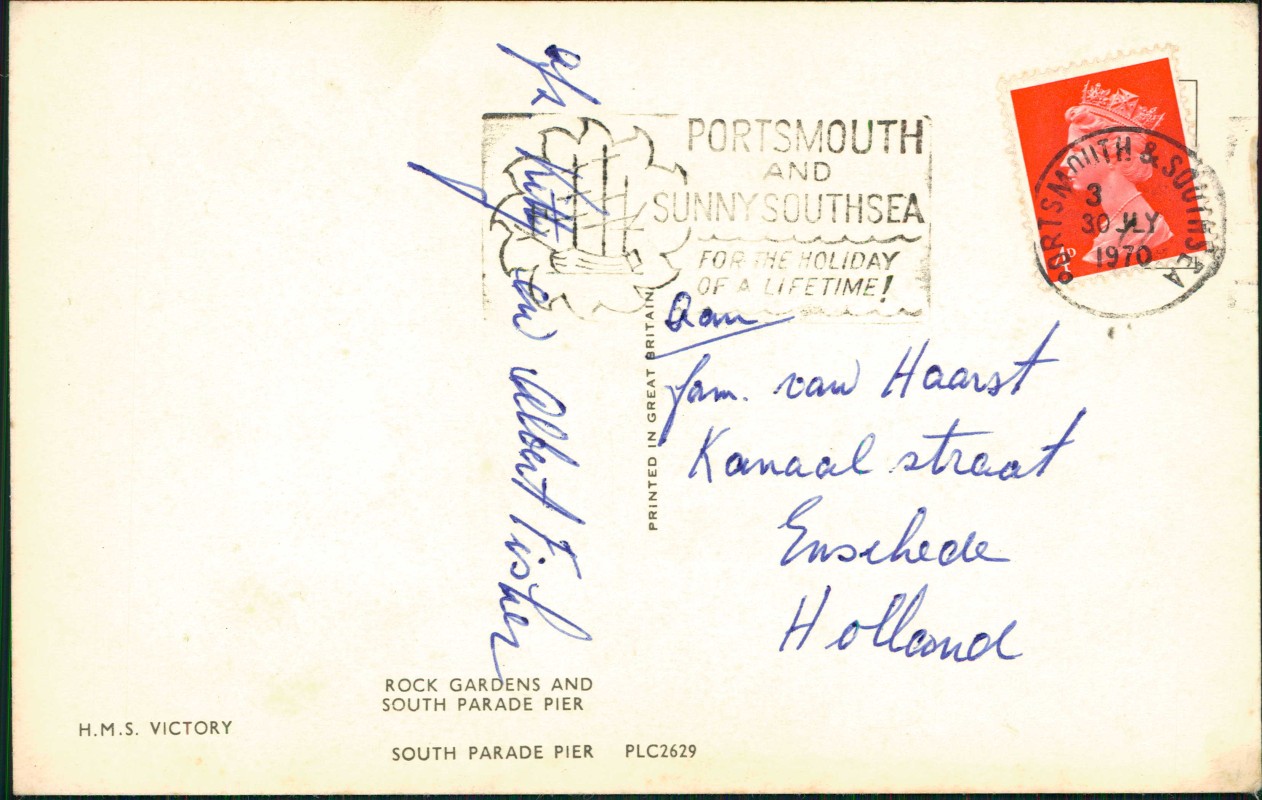 PORTSMOUTH
AND
SUNNY SOUTHSEA
FOR THE HOLIDAY
OF A LIFETIME!
PORTSMOUTH & SOUTHSEA
3
30 JLY
1970
4D
afz Kitty en Albert Fisher
PRINTED IN GREAT BRITAIN
Aan
fam. van Haarst
Kanaal straat
Enschede
Holland
ROCK GARDENS AND
SOUTH PARADE PIER
H.M.S. VICTORY
SOUTH PARADE PIER PLC2629